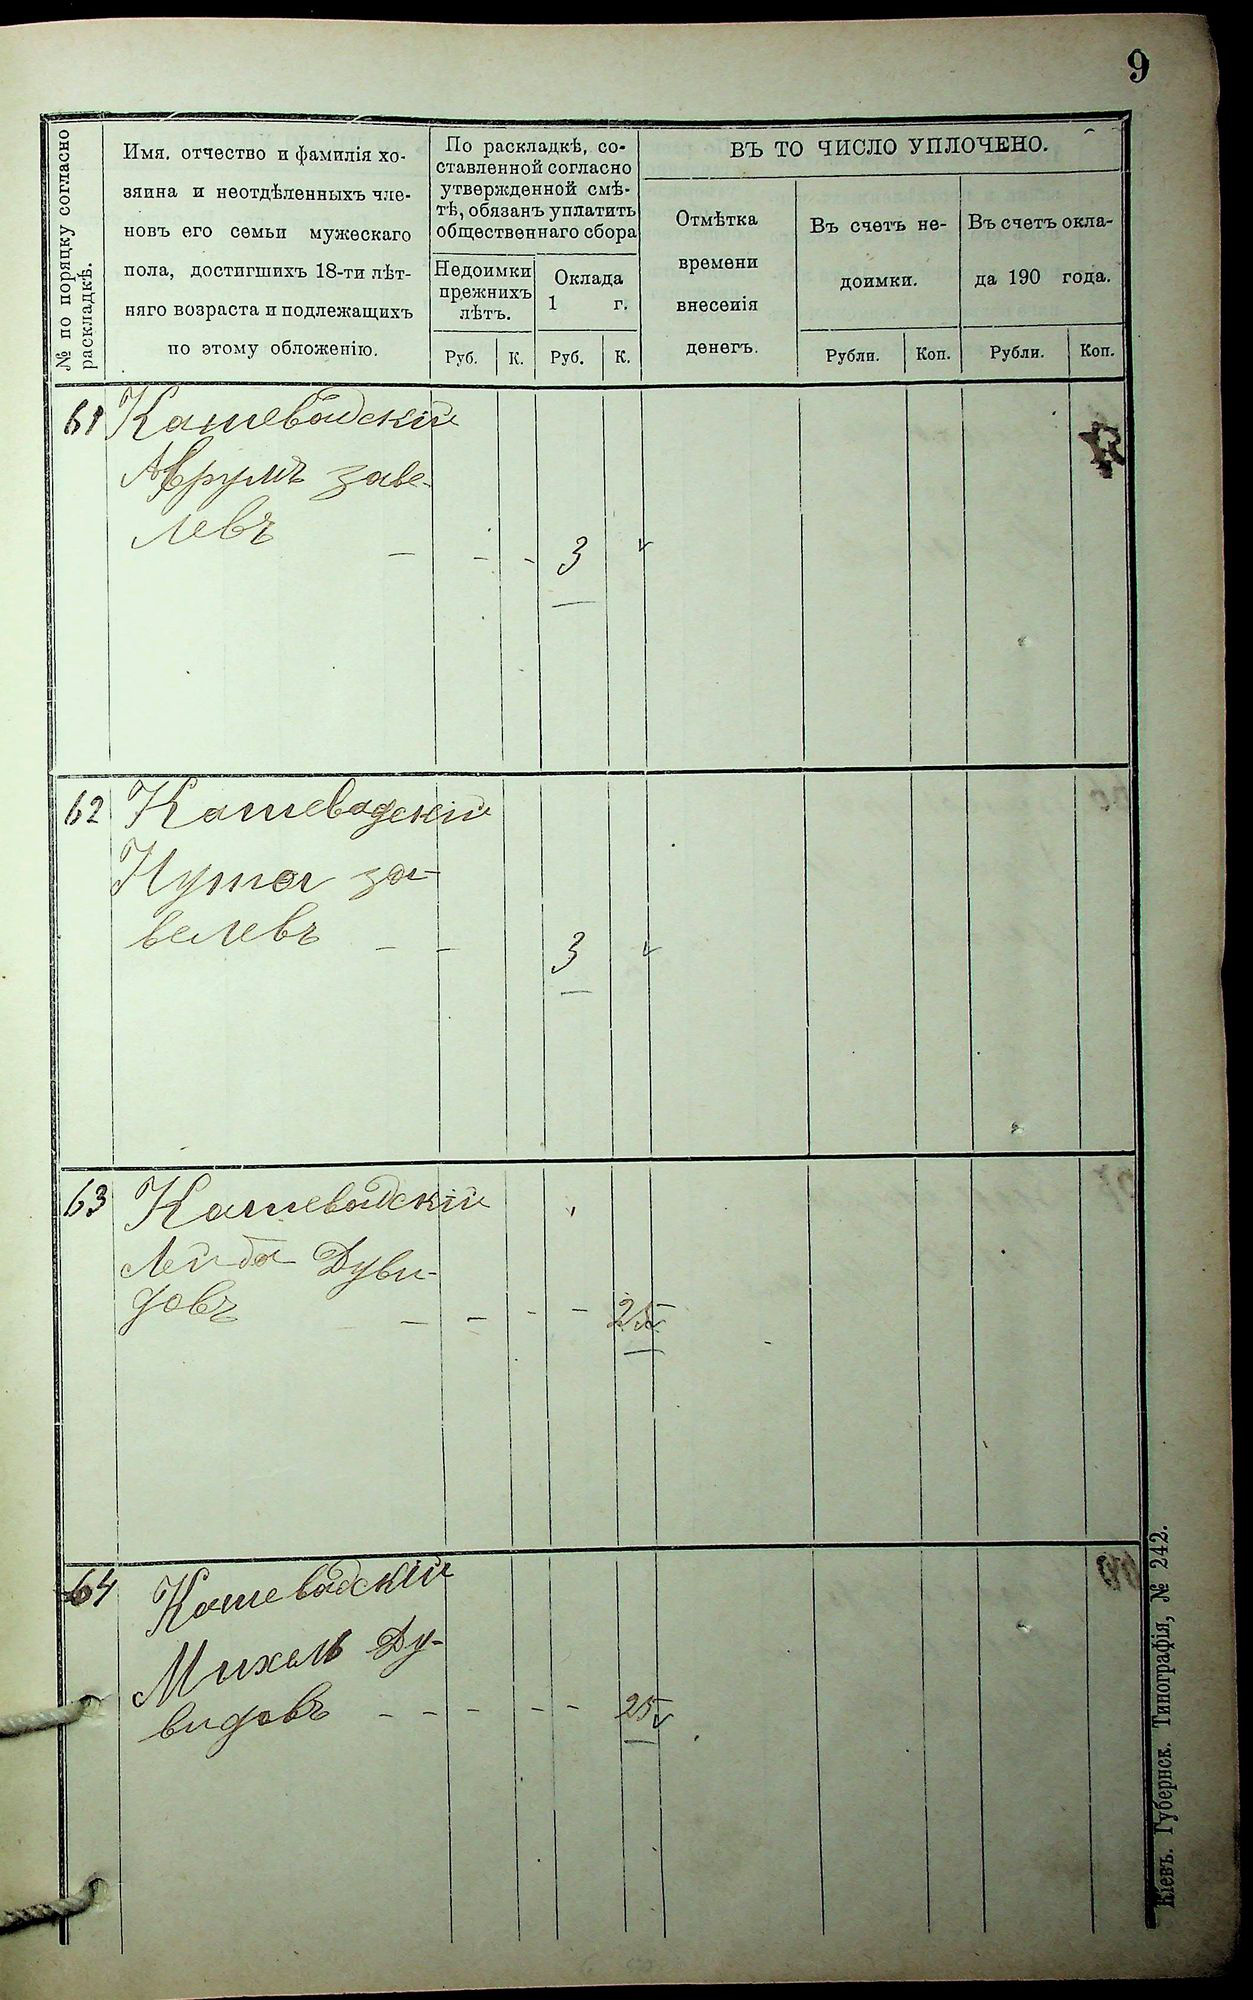 9
№ по поряцку согласно
раскладкѣ.
Имя, отчество и фамилія хо-
зяина и неотдѣленныхъ чле-
новъ его семьи мужескаго
пола, достигшихъ 18-ти лѣт-
няго возраста и подлежащихъ
по этому обложенію.
По раскладкѣ, со-
ставленной согласно
утвержденной смѣ-
тѣ, обязанъ уплатить
общественнаго сбора
Недоимки
прежнихъ
лѣтъ.
Оклада
1 г.
Руб. К. Руб. К.
ВЪ ТО ЧИСЛО УПЛОЧЕНО.
Отмѣтка
времени
внесенія
денегъ.
Въ счетъ не-
доимки.
Въ счетъ окла-
да 190 года.
Рубли. Коп. Рубли. Коп.
61 Кашевадскій
Аврумъ Заве-
левъ - - - 3
62 Кашевадскій
Нута За-
велевъ - - 3
63 Кашевадскій
Лейба Дуви-
довъ - - - - 25
64 Кашевадскій
Михель Ду-
видовъ - - - - - 25
Кіевъ. Губернск. Типографія, № 242.